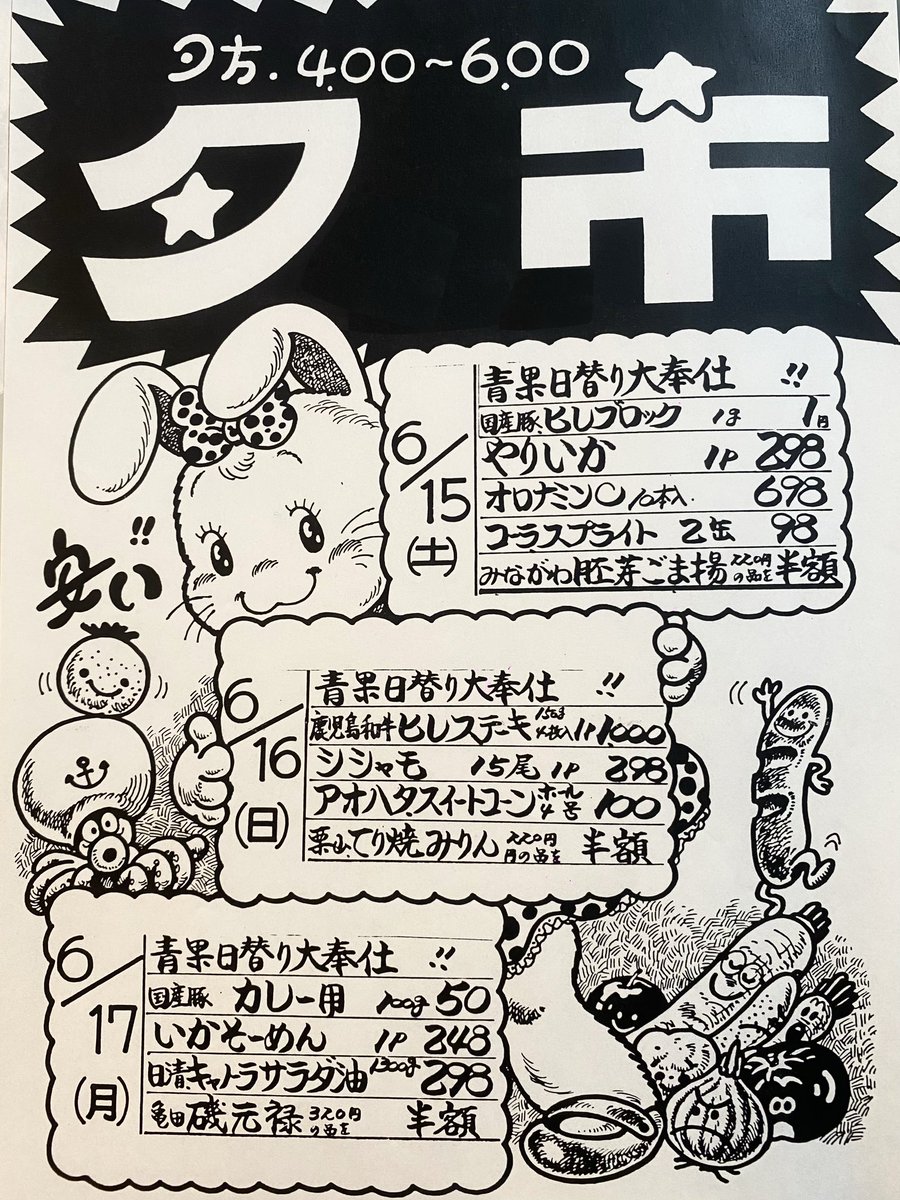 夕方.4.00~6.00
夕市
安い!!
6/15(土)
青果日替り大奉仕!!
国産豚.ヒレブロック 1g 1円
やりいか 1P 298
オロナミンC 10本入. 698
コーラスプライト 2缶 98
みながわ胚芽ごま揚 220円の品を 半額
6/16(日)
青果日替り大奉仕!!
鹿児島和牛ヒレステーキ 1P 1.000
シシャモ 15尾 1P 298
アオハタスイートコーン ホール4号 100
栗山.てり焼みりん 220円の品を 半額
6/17(月)
青果日替り大奉仕!!
国産豚 カレー用 100g 50
いかそーめん 1P 248
日清キャノーラサラダ油 1300g 298
亀田磯元禄 320円の品を 半額